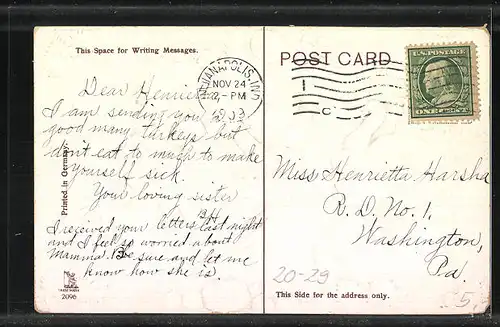 This Space for Writing Messages.
POST CARD
U.S. POSTAGE
ONE CENT
INDIANAPOLIS, IND
NOV 24
-PM
1
C
Dear
I am sending you a
good many turkeys but
don't eat to much to make
yourself sick.
Your loving sister
I received your letters last night
and I feel so worried about
Mamma. Be sure and let me
know how she is.
Printed in Germany.
2096
Miss Henrietta Harsha
R. D. No. 1.
Washington,
Pa.
20-29
This Side for the address only.
5